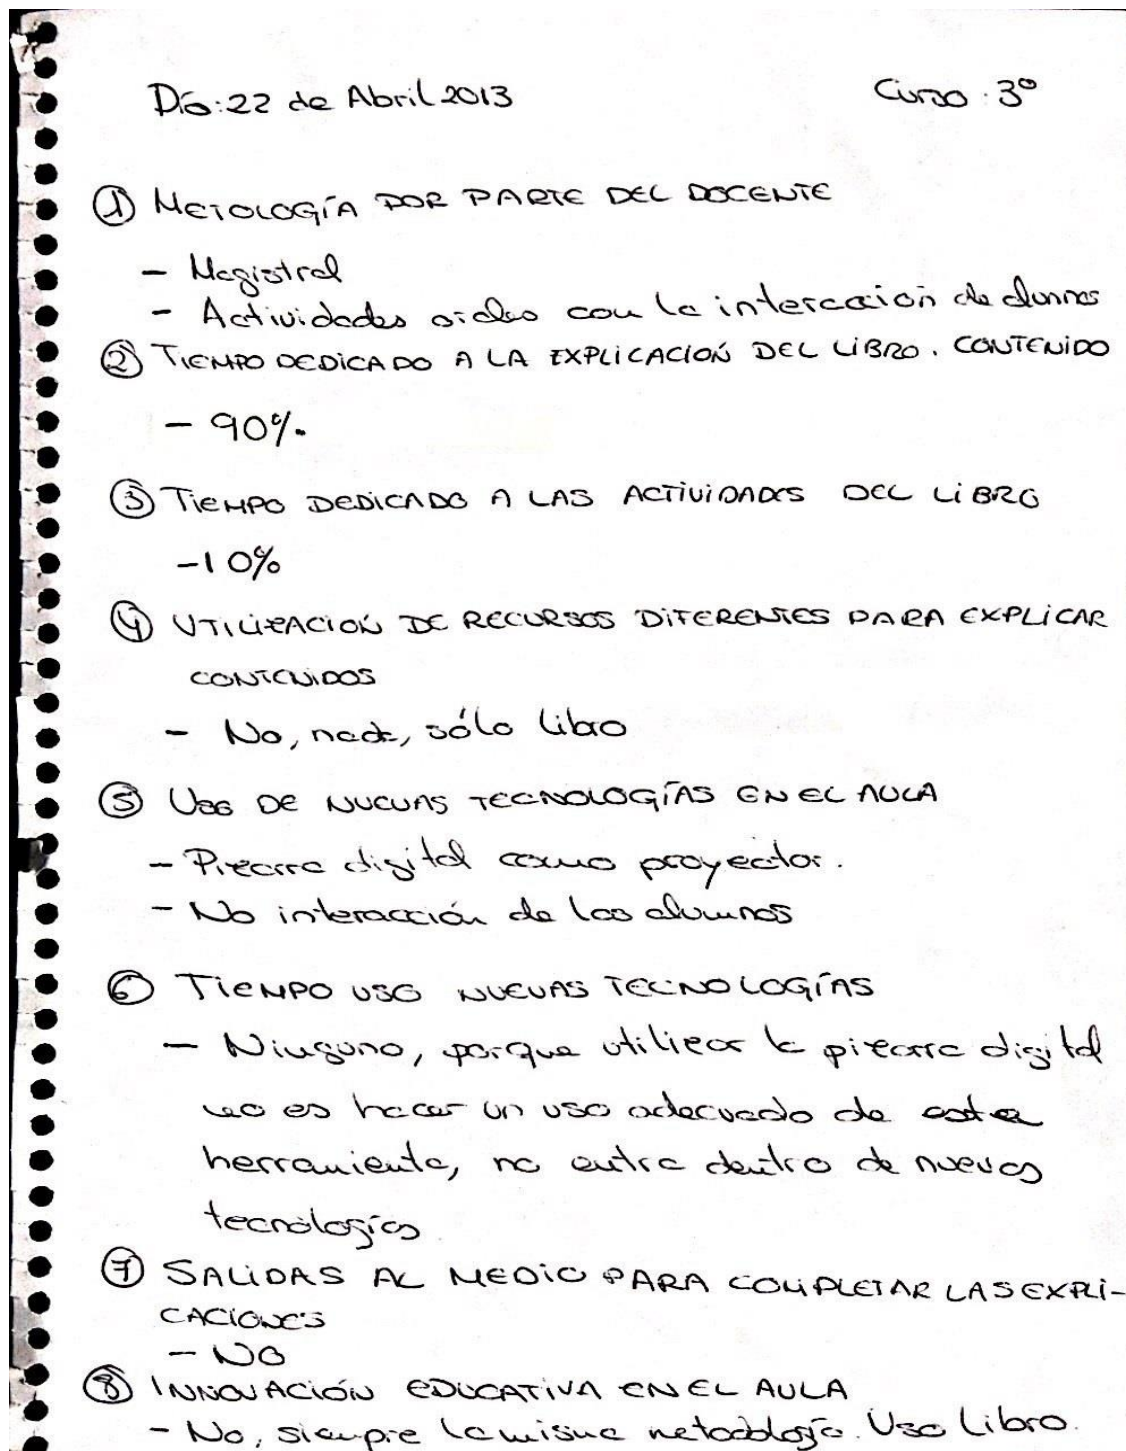 Día: 22 de Abril 2013 Curso: 3º
① METOLOGÍA POR PARTE DEL DOCENTE
- Magistral
- Actividades orales con la interacción de alumnos
② TIEMPO DEDICADO A LA EXPLICACIÓN DEL LIBRO. CONTENIDO
- 90%.
③ TIEMPO DEDICADO A LAS ACTIVIDADES DEL LIBRO
- 10%
④ UTILIZACIÓN DE RECURSOS DIFERENTES PARA EXPLICAR
CONTENIDOS
- No, nada, sólo libro
⑤ USO DE NUEVAS TECNOLOGÍAS EN EL AULA
- Pizarra digital como proyector.
- No interacción de los alumnos
⑥ TIEMPO USO NUEVAS TECNOLOGÍAS
- Ninguno, porque utilizar la pizarra digital
no es hacer un uso adecuado de esta
herramienta, no entra dentro de nuevas
tecnologías.
⑦ SALIDAS AL MEDIO PARA COMPLETAR LAS EXPLI-
CACIONES
- NO
⑧ INNOVACIÓN EDUCATIVA EN EL AULA
- No, siempre la misma metodología. Uso Libro.